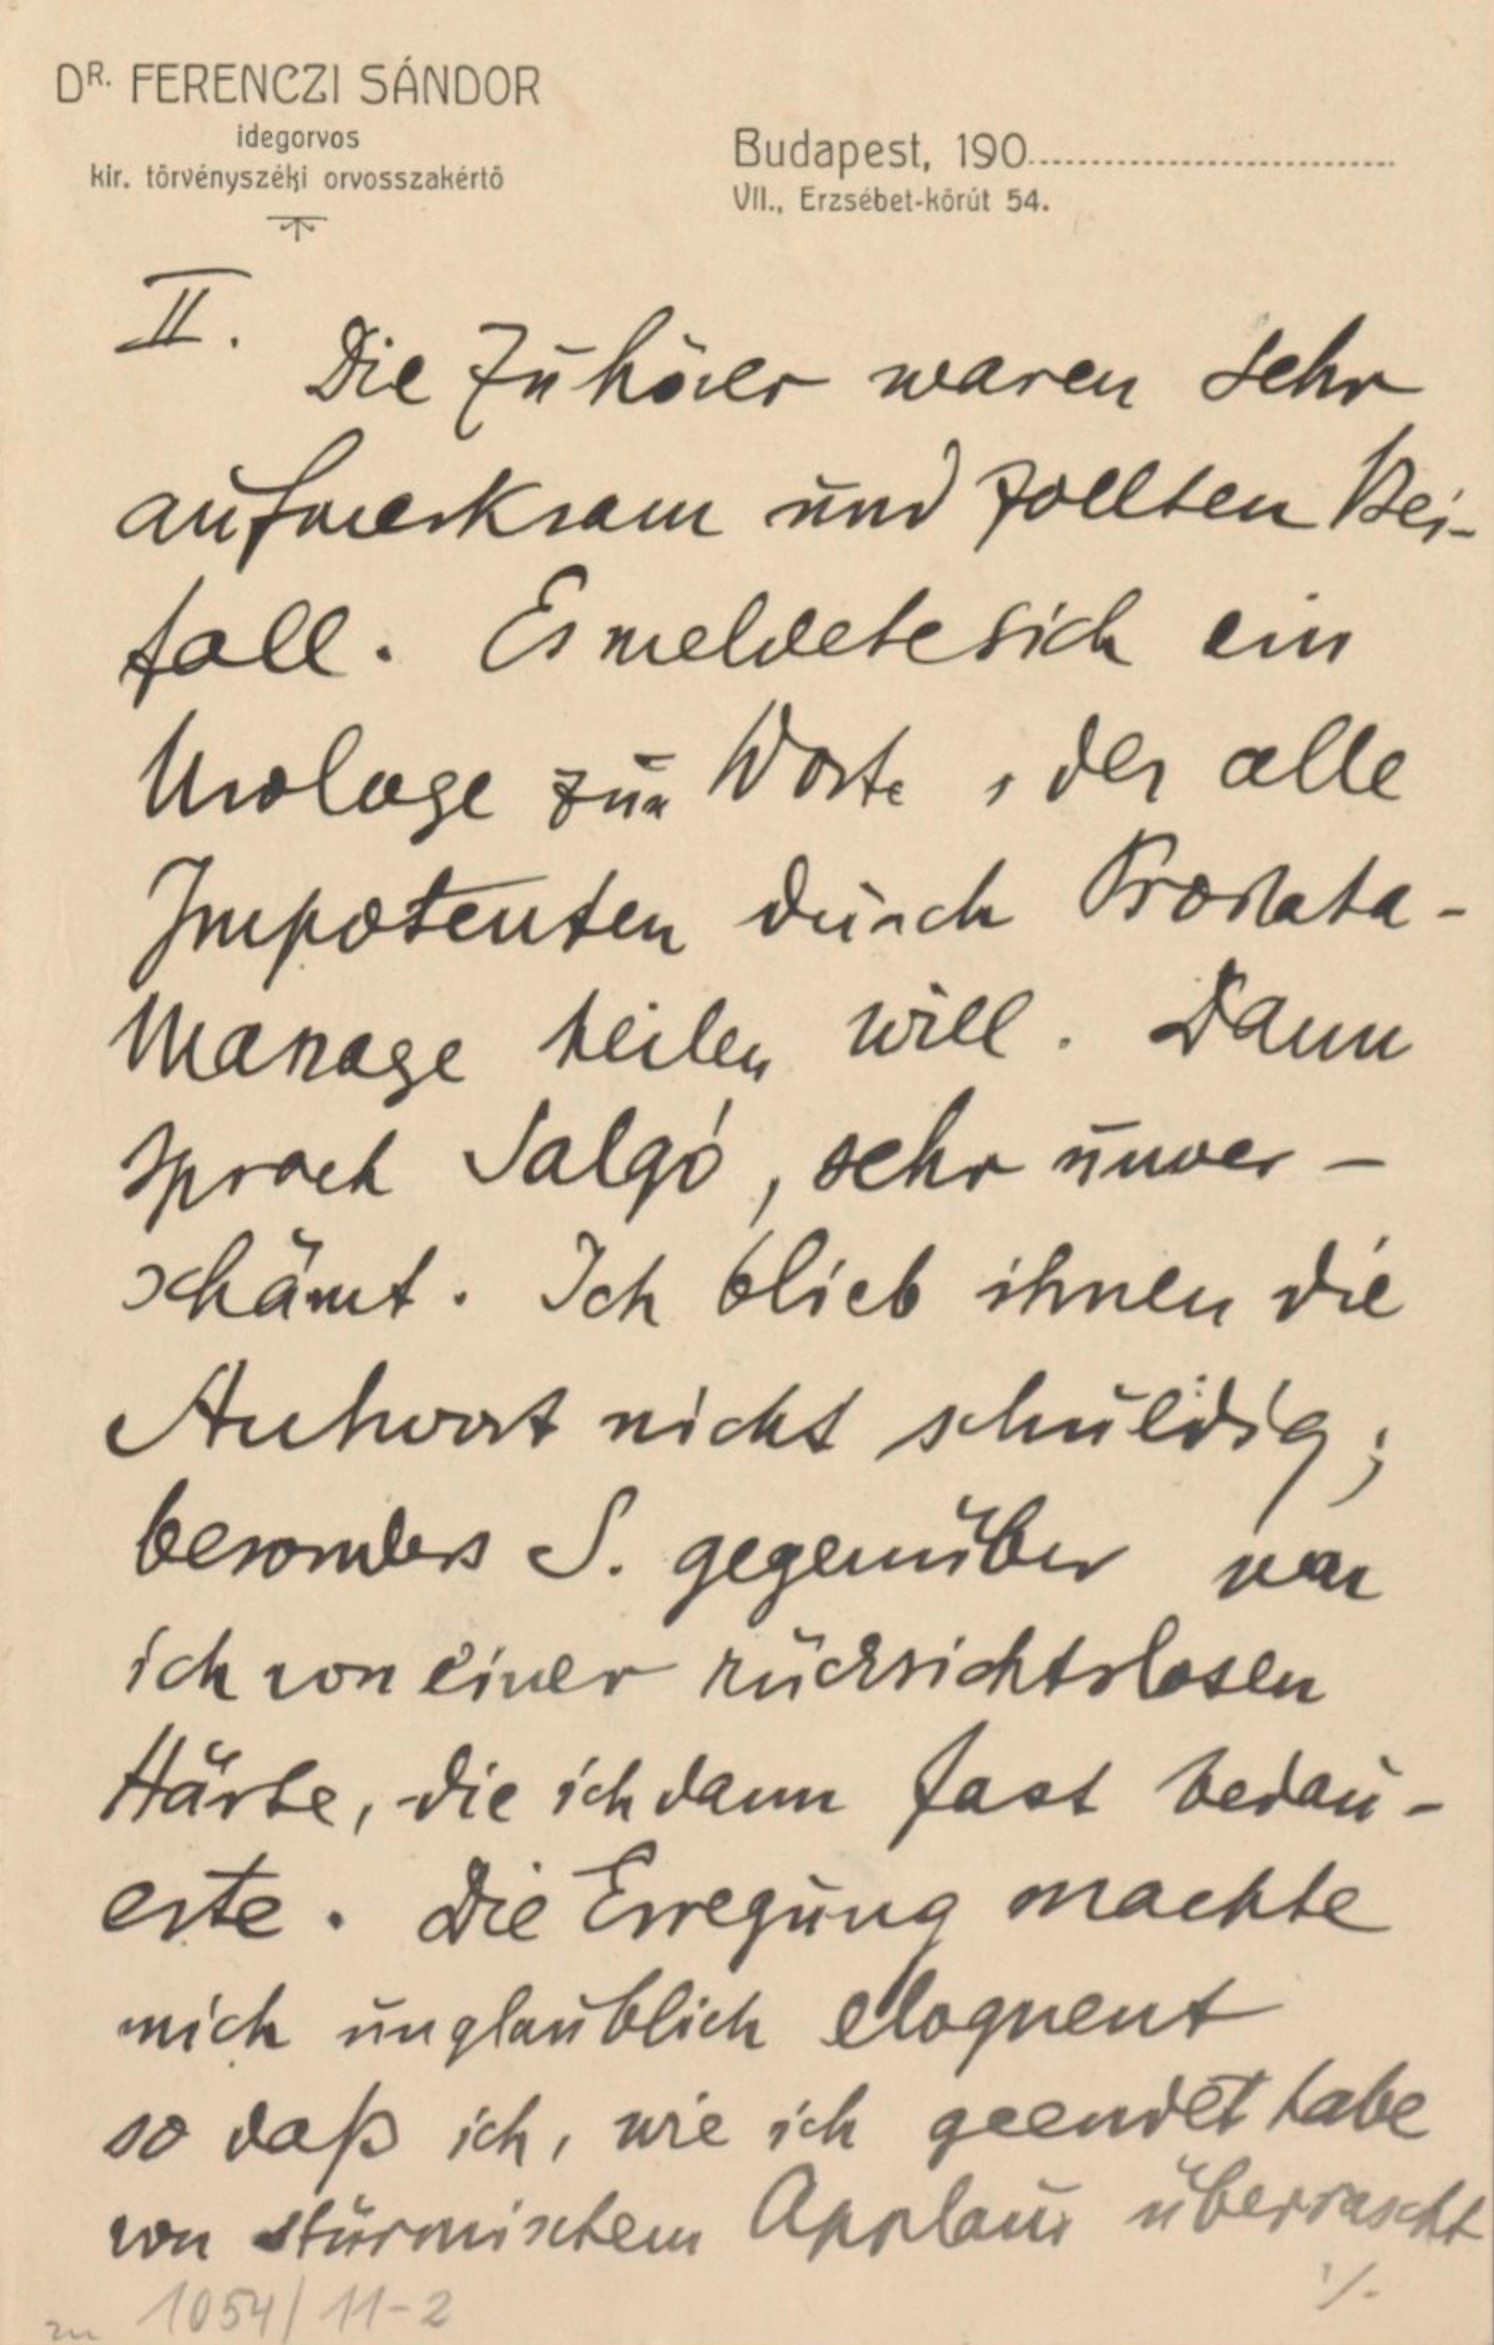 DR. FERENCZI SÁNDOR
idegorvos
kir. törvényszéki orvosszakértő
Budapest, 190
VII., Erzsébet-körút 54.
II.
Die Zuhörer waren sehr
aufmerksam und zollten Bei-
fall. Es meldete sich ein
Urologe zum Worte, der alle
Impotenten durch Prostata-
Massage heilen will. Dann
sprach Salgó, sehr unver-
schämt. Ich blieb ihnen die
Antwort nicht schuldig;
besonders S. gegenüber war
ich von einer rücksichtslosen
Härte, die ich dann fast bedau-
erte. Die Erregung machte
mich unglaublich eloquent
so daß ich, wie ich geendet habe
von stürmischem Applaus überrascht
./.
zu 1054/11-2